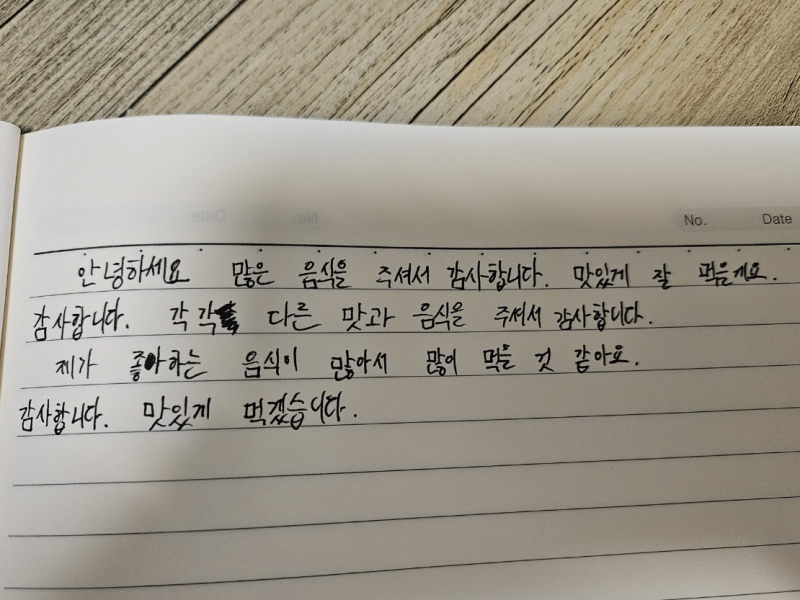 No. Date
안녕하세요 많은 음식을 주셔서 감사합니다. 맛있게 잘 먹을게요.
감사합니다. 각각 다른 맛과 음식을 주셔서 감사합니다.
제가 좋아하는 음식이 많아서 많이 먹을 것 같아요.
감사합니다. 맛있게 먹겠습니다.